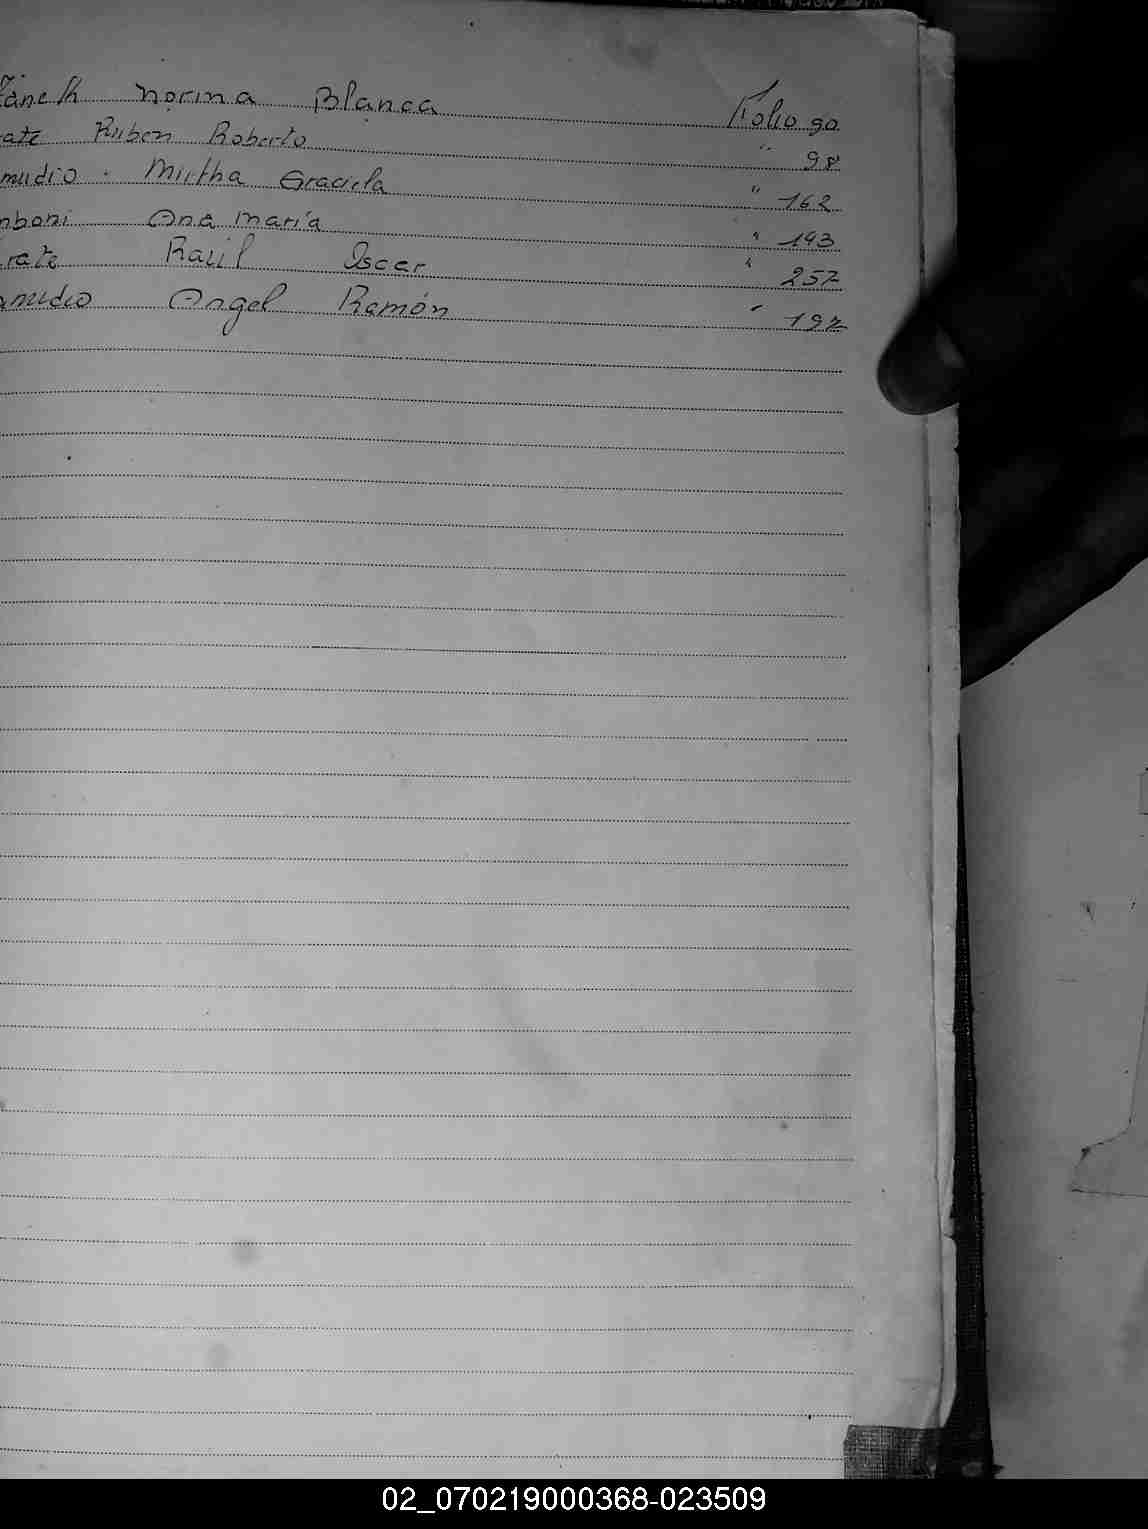 Zanek Norma Blanca Folio 90
ate Ruben Roberto " 98
mudio Mirtha Graciela " 162
mboni Ana María " 193
rate Raúl Oscar " 257
amudio Angel Ramón " 192
02_070219000368-023509